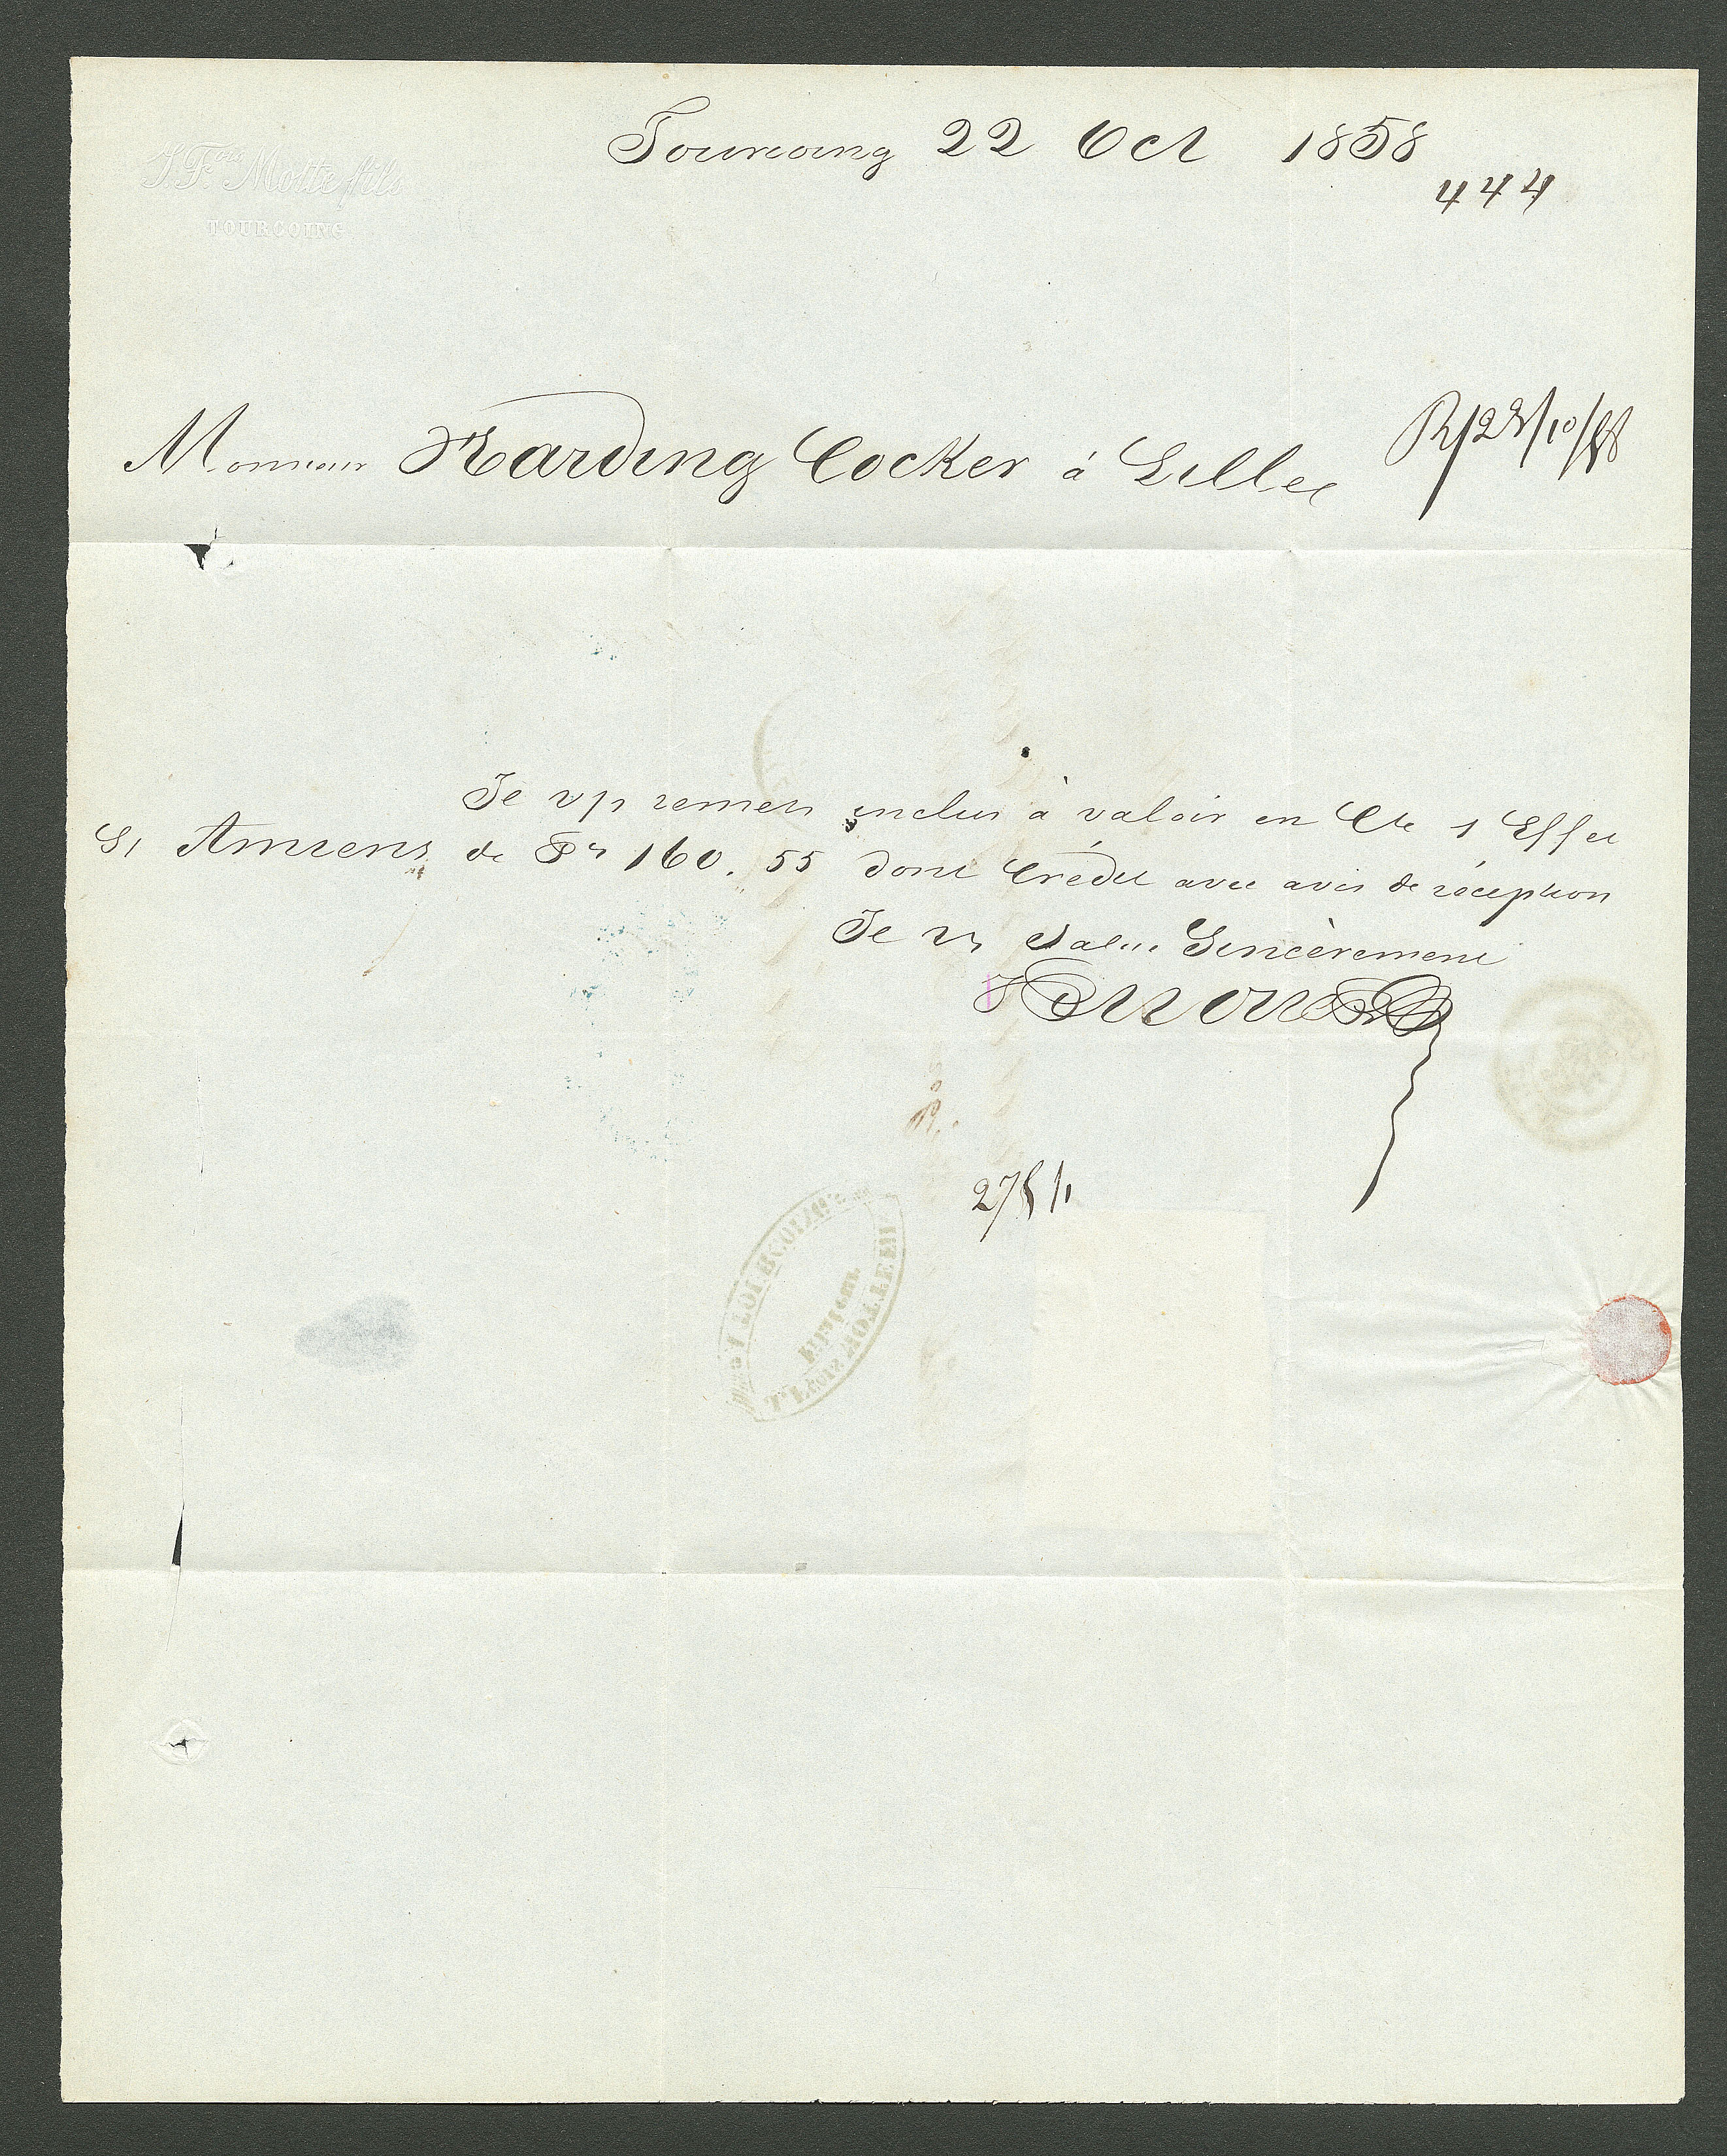 J. F.ois Motte fils
TOURCOING
Tourcoing 22 Oct 1858
444
Monsieur Harding Cocker à Lille
R/23/10/58
Je v/s remets inclus à valoir en Cte 1 Effet
S/ Amiens de Frs 160.55 dont Crédit avec avis de réception
Je vs salue Sincèrement